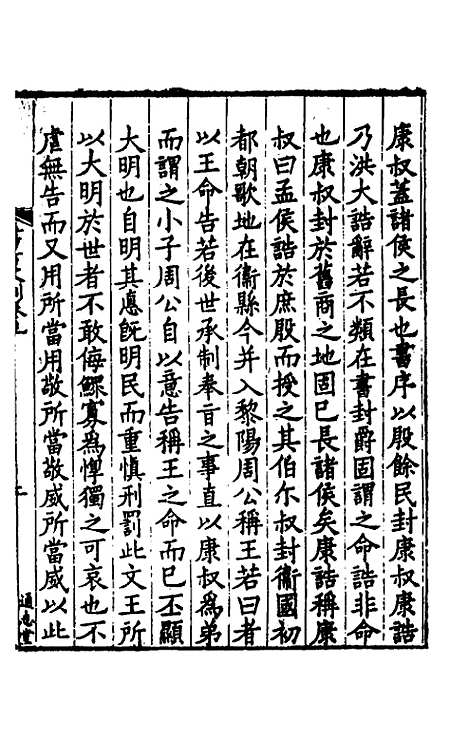 康叔蓋諸侯之長也書序以殷餘民封康叔康誥
乃洪大誥辭若不類在書封爵固謂之命誥非命
也康叔封於舊商之地固已長諸侯矣康誥稱康
叔曰孟侯誥於庶殷而授之其伯尒叔封衞國初
都朝歌地在衞縣今并入黎陽周公稱王若曰者
以王命告若後世承制奉㫖之事直以康叔為弟
而謂之小子周公自以意告稱王之命而已丕顯
大明也自明其悳旣明民而重慎刑罰此文王所
以大明於世者不敢侮鰥寡為惸獨之可哀也不
虐無告而又用所當用敬所當敬威所當威以此
通志堂